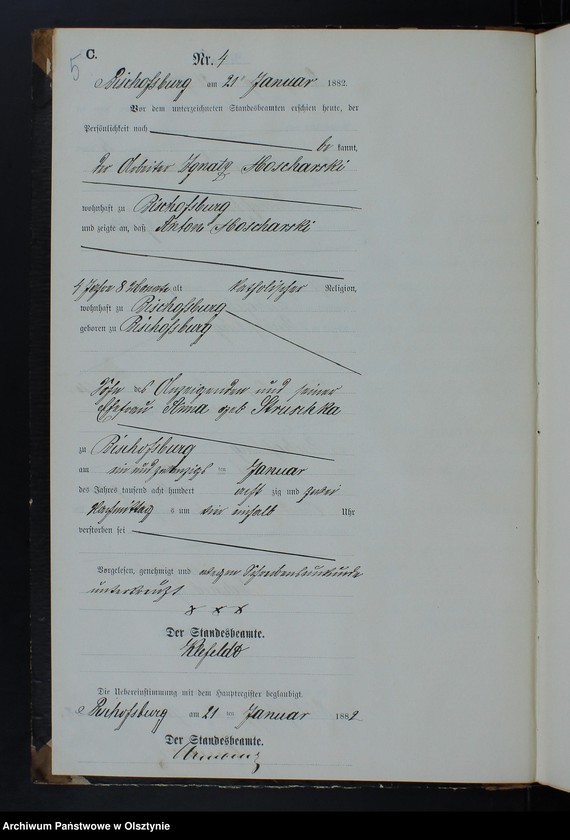 5
C.
Nr. 4
Bischofsburg am 21 Januar 1882.
Vor dem unterzeichneten Standesbeamten erschien heute, der
Persönlichkeit nach
be kannt,
der Arbeiter Ignatz Moscharski
wohnhaft zu Bischofsburg
und zeigte an, daß Anton Moscharski
4 Jahre 8 Monate alt katholischer Religion,
wohnhaft zu Bischofsburg
geboren zu Bischofsburg
Sohn des Anzeigenden und seiner
Ehefrau geb Struschka
zu Bischofsburg
am ein und zwanzigs ten Januar
des Jahres tausend acht hundert acht zig und zwei
Nachmittag s um vier einhalb Uhr
verstorben sei
Vorgelesen, genehmigt und wegen Schreibensunkunde
unterkreuzt
x x x
Der Standesbeamte.
Klefeldt
Die Uebereinstimmung mit dem Hauptregister beglaubigt.
Bischofsburg am 21 ten Januar 1882
Der Standesbeamte.
Archiwum Państwowe w Olsztynie